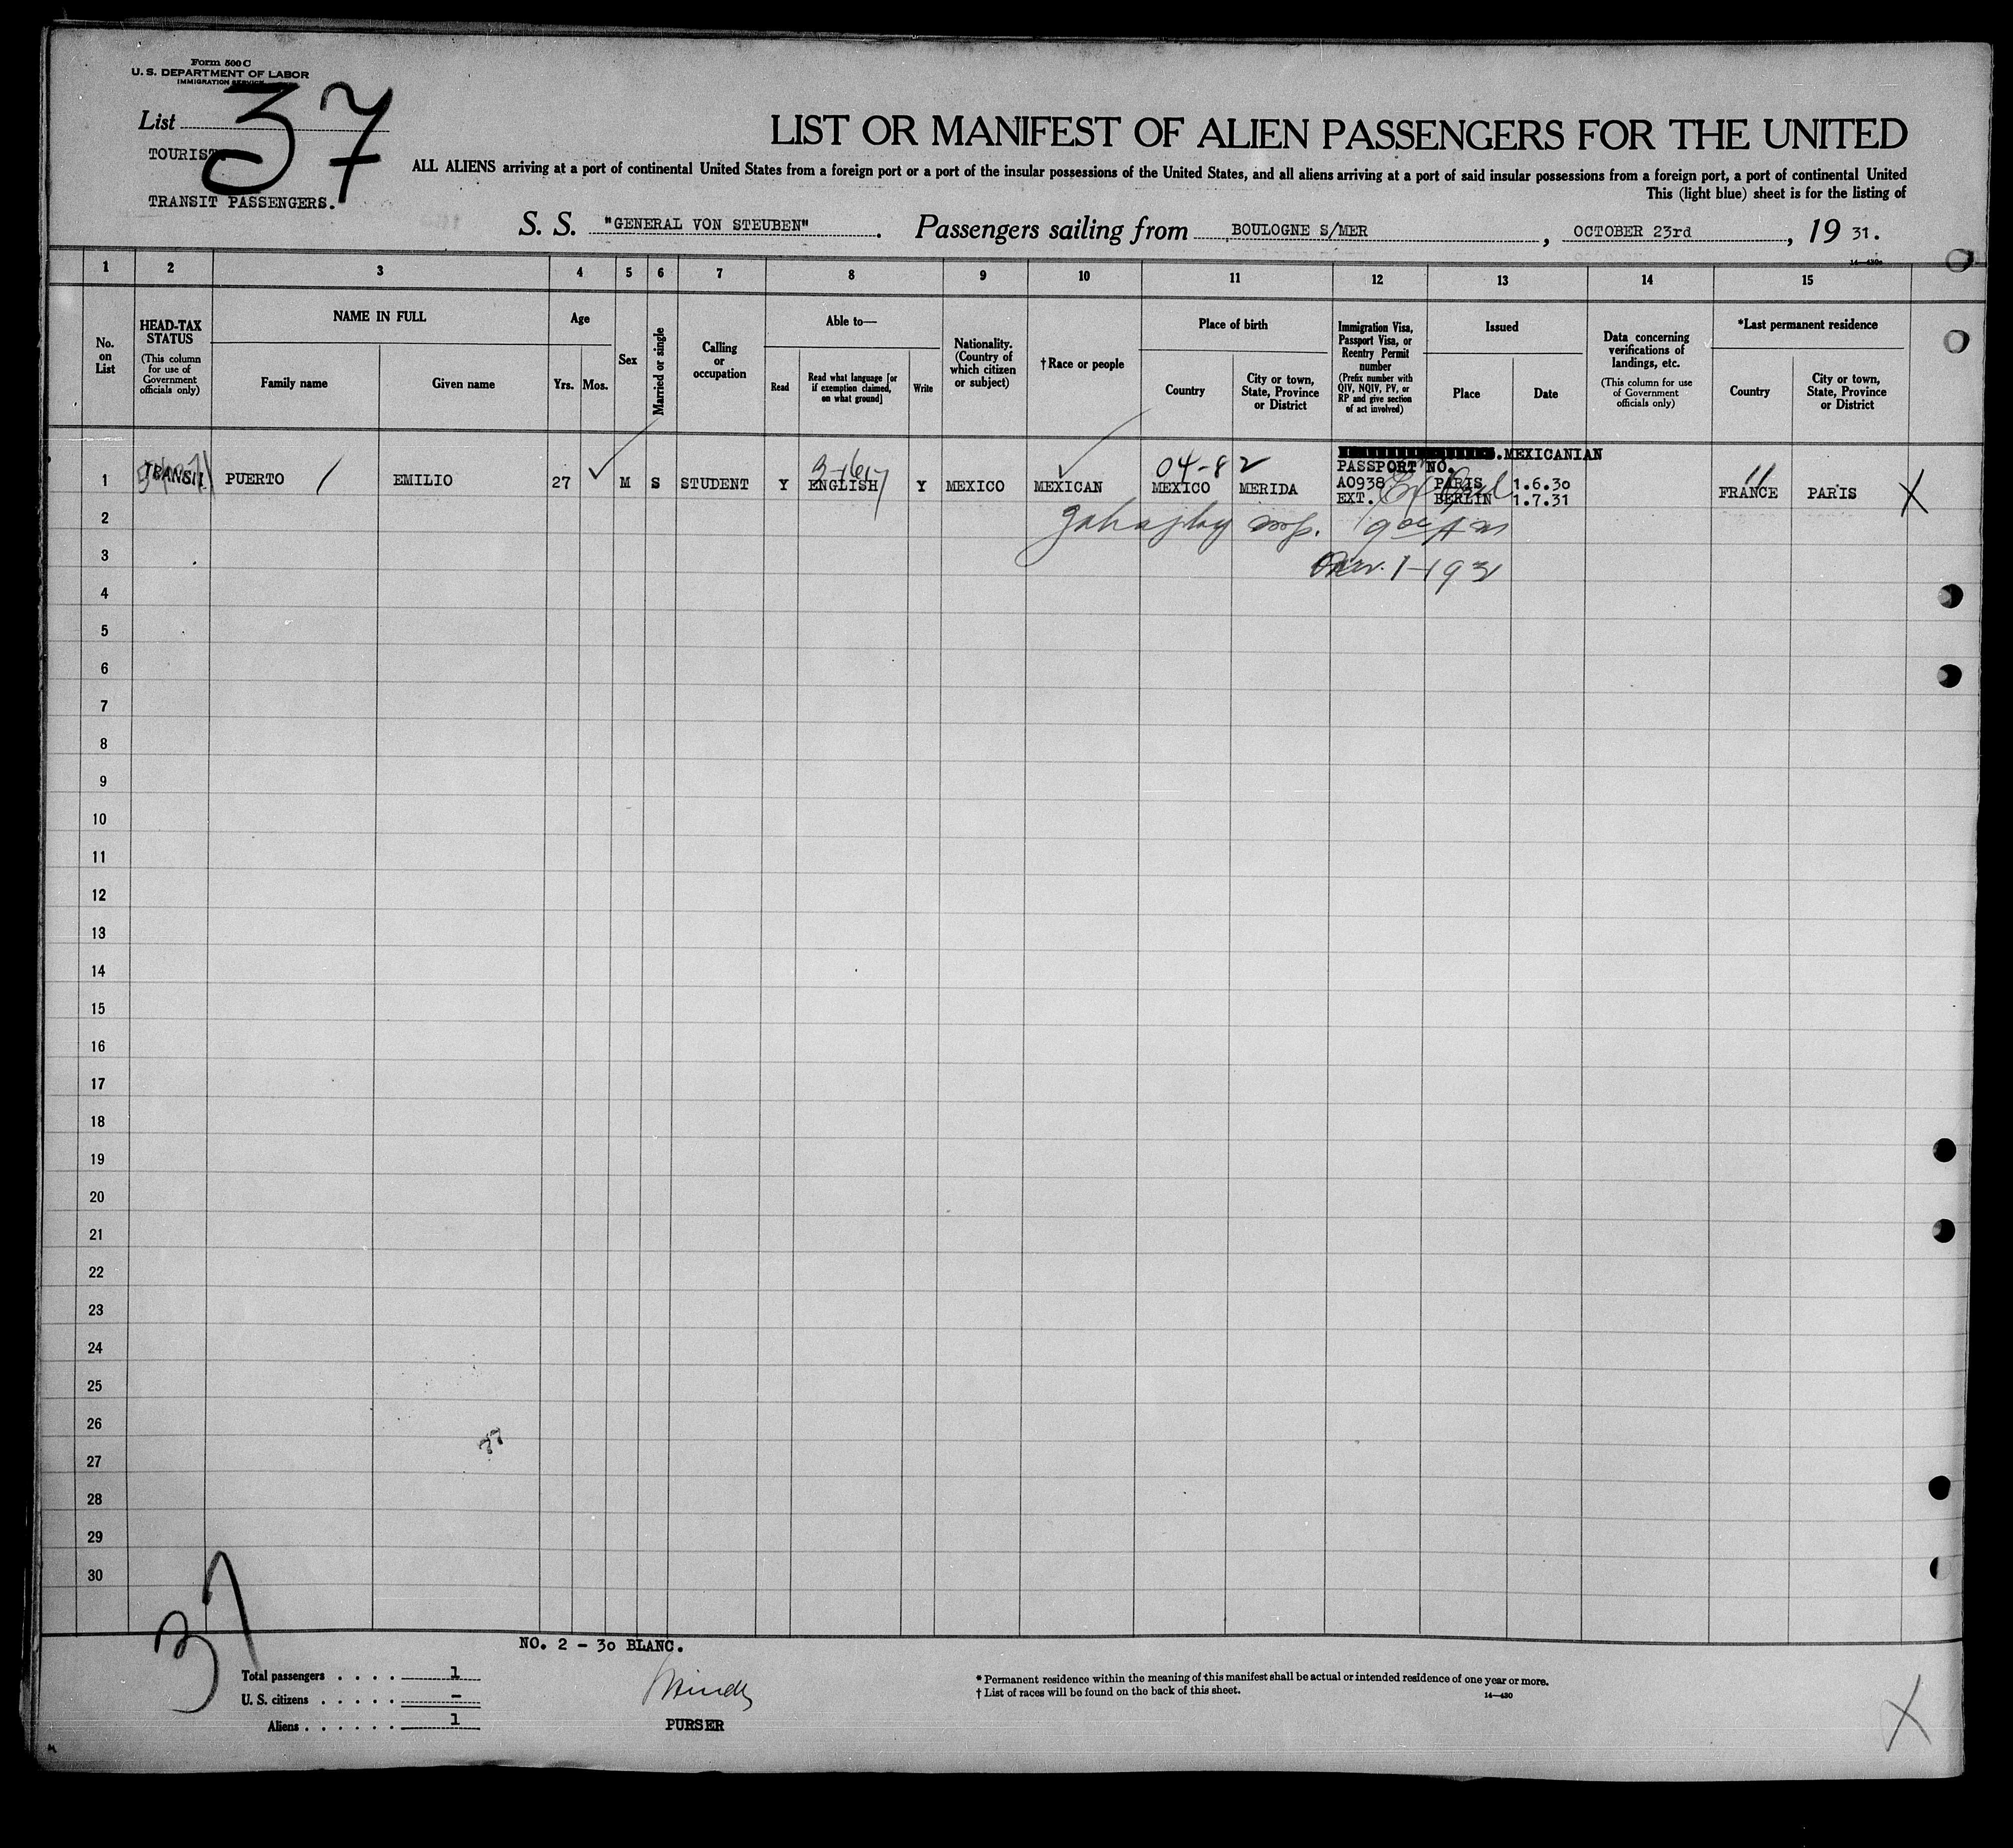 Form 500 C
U. S. DEPARTMENT OF LABOR
IMMIGRATION SERVICE
List 37
TOURIST
TRANSIT PASSENGERS.
LIST OR MANIFEST OF ALIEN PASSENGERS FOR THE UNITED
ALL ALIENS arriving at a port of continental United States from a foreign port or a port of the insular possessions of the United States, and all aliens arriving at a port of said insular possessions from a foreign port, a port of continental United
This (light blue) sheet is for the listing of
S. S. "GENERAL VON STEUBEN". Passengers sailing from BOULOGNE S/MER, OCTOBER 23rd, 19 31.
14—430a
1 2 3 4 5 6 7 8 9 10 11 12 13 14 15
No. on List
HEAD-TAX STATUS
(This column for use of Government officials only)
NAME IN FULL
Family name
Given name
Age
Yrs. Mos.
Sex
Married or single
Calling or occupation
Able to—
Read
Read what language [or if exemption claimed, on what ground]
Write
Nationality. (Country of which citizen or subject)
†Race or people
Place of birth
Country
City or town, State, Province or District
Immigration Visa, Passport Visa, or Reentry Permit number
(Prefix number with QIV, NQIV, PV, or RP and give section of act involved)
Issued
Place
Date
Data concerning verifications of landings, etc.
(This column for use of Government officials only)
*Last permanent residence
Country
City or town, State, Province or District
.MEXICANIAN
04-82 PASSPORT NO.
1 TRANSIT PUERTO / EMILIO 27 M S STUDENT Y ENGLISH Y MEXICO MEXICAN MEXICO MERIDA A0938 PARIS 1.6.30 FRANCE PARIS X
EXT. BERLIN 1.7.31
2
3
4
5
6
7
8
9
10
11
12
13
14
15
16
17
18
19
20
21
22
23
24
25
26
27
28
29
30
37
NO. 2 - 30 BLANC.
Total passengers . . . . 1
U. S. citizens . . . . . –
Aliens . . . . . . 1
PURSER
* Permanent residence within the meaning of this manifest shall be actual or intended residence of one year or more.
† List of races will be found on the back of this sheet.
14—430
X